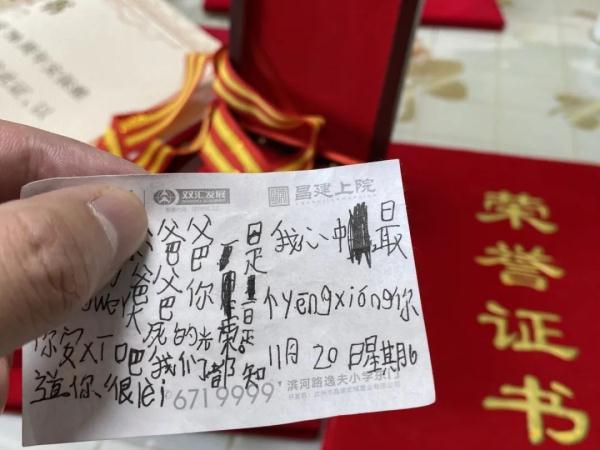 双汇发展
昌建上院
爸爸是我心中最
爸爸你是一个yēngxióng你
死的光荣
你安xī吧我们都知
道你很lèi
11月20日星期6
6719999
滨河路逸夫小学东门
荣誉证书